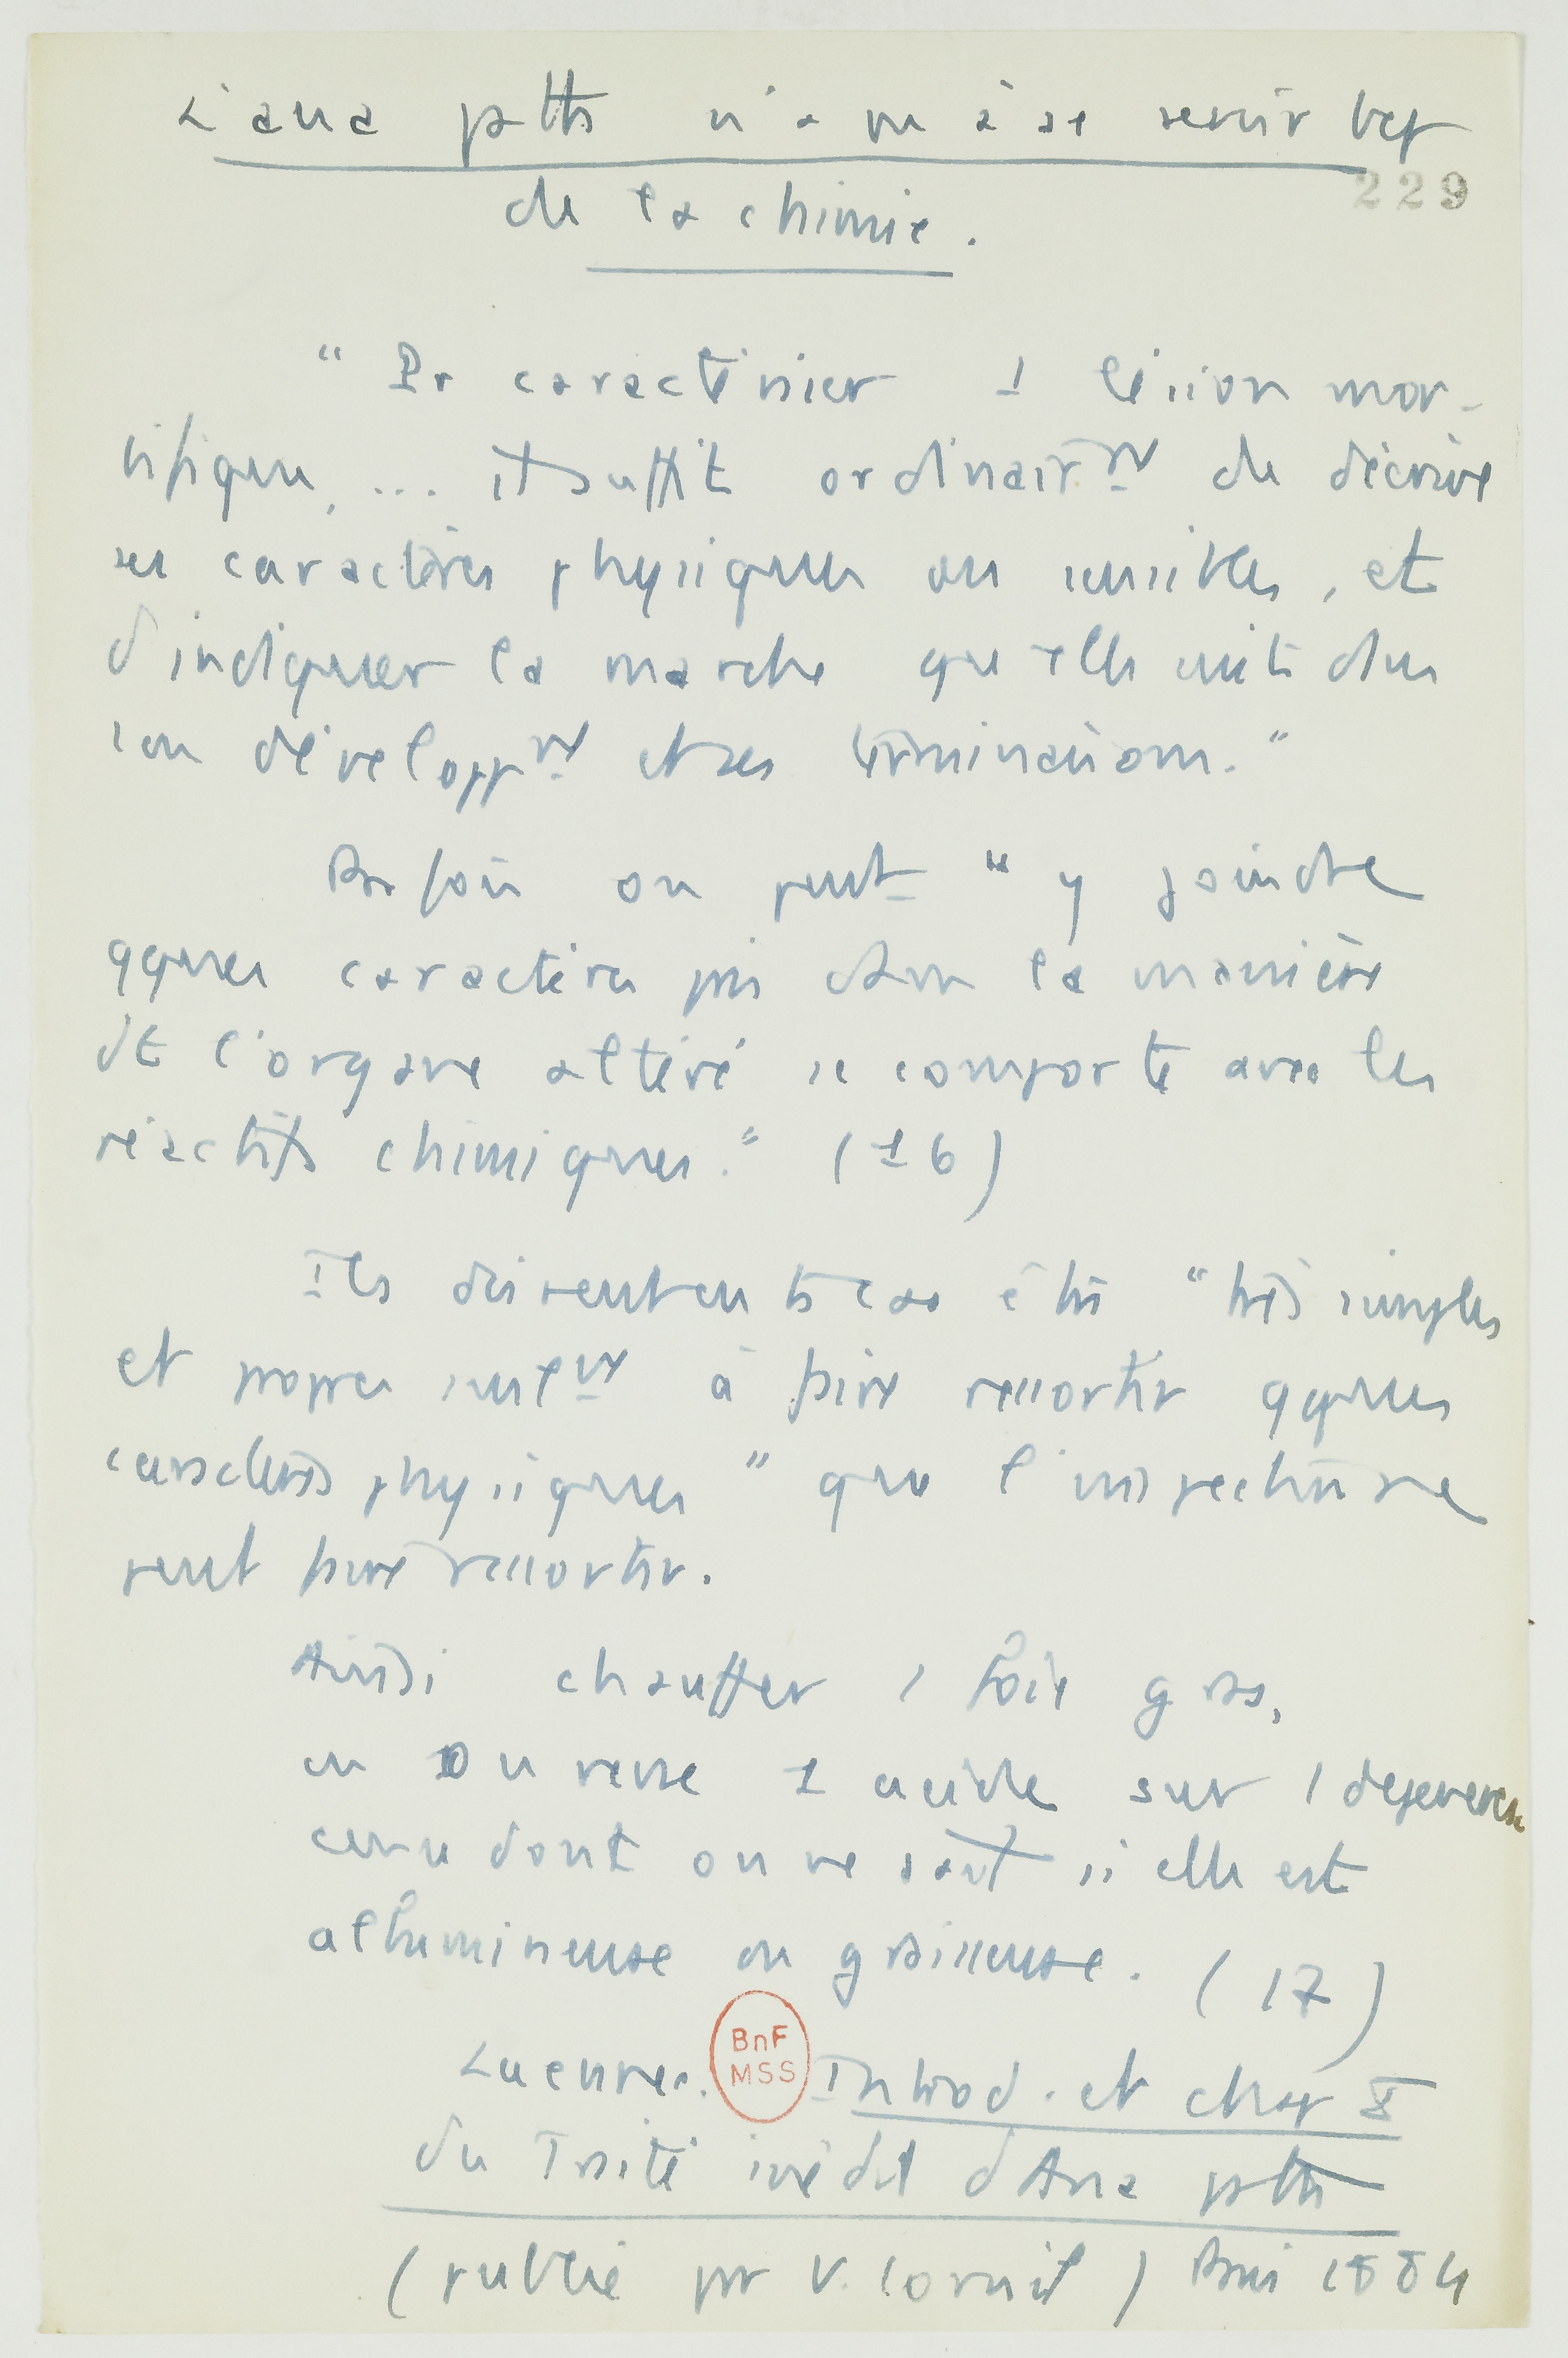 L'ana path n'a pu à se servir bcp
229
de la chimie.
" Pr caractériser 1 lésion mor-
bifique, ... il suffit ordinairt de décrire
ses caractères physiques ou sensibles, et
d'indiquer la marche qu'elle suit dans
son développt et ses terminaisons."
Parfois on peut " y joindre
qques caractères pris dans la manière
dt l'organe altéré se comporte avec les
réactifs chimiques." (16)
Ils doivent en ts cas être " très simples
et propres seult à faire ressortir qques
caractères physiques " que l'inspection
peut faire ressortir.
Ainsi chauffer 1 foie gras,
ou verse 1 acide sur 1 degeneres
cence dont on ne sait si elle est
albumineuse ou graisseuse. (17)
Laennec. Introd. et chap I
BnF
MSS
du Traité inédit d'Ana path
(publié par V. Cornil) Paris 1884